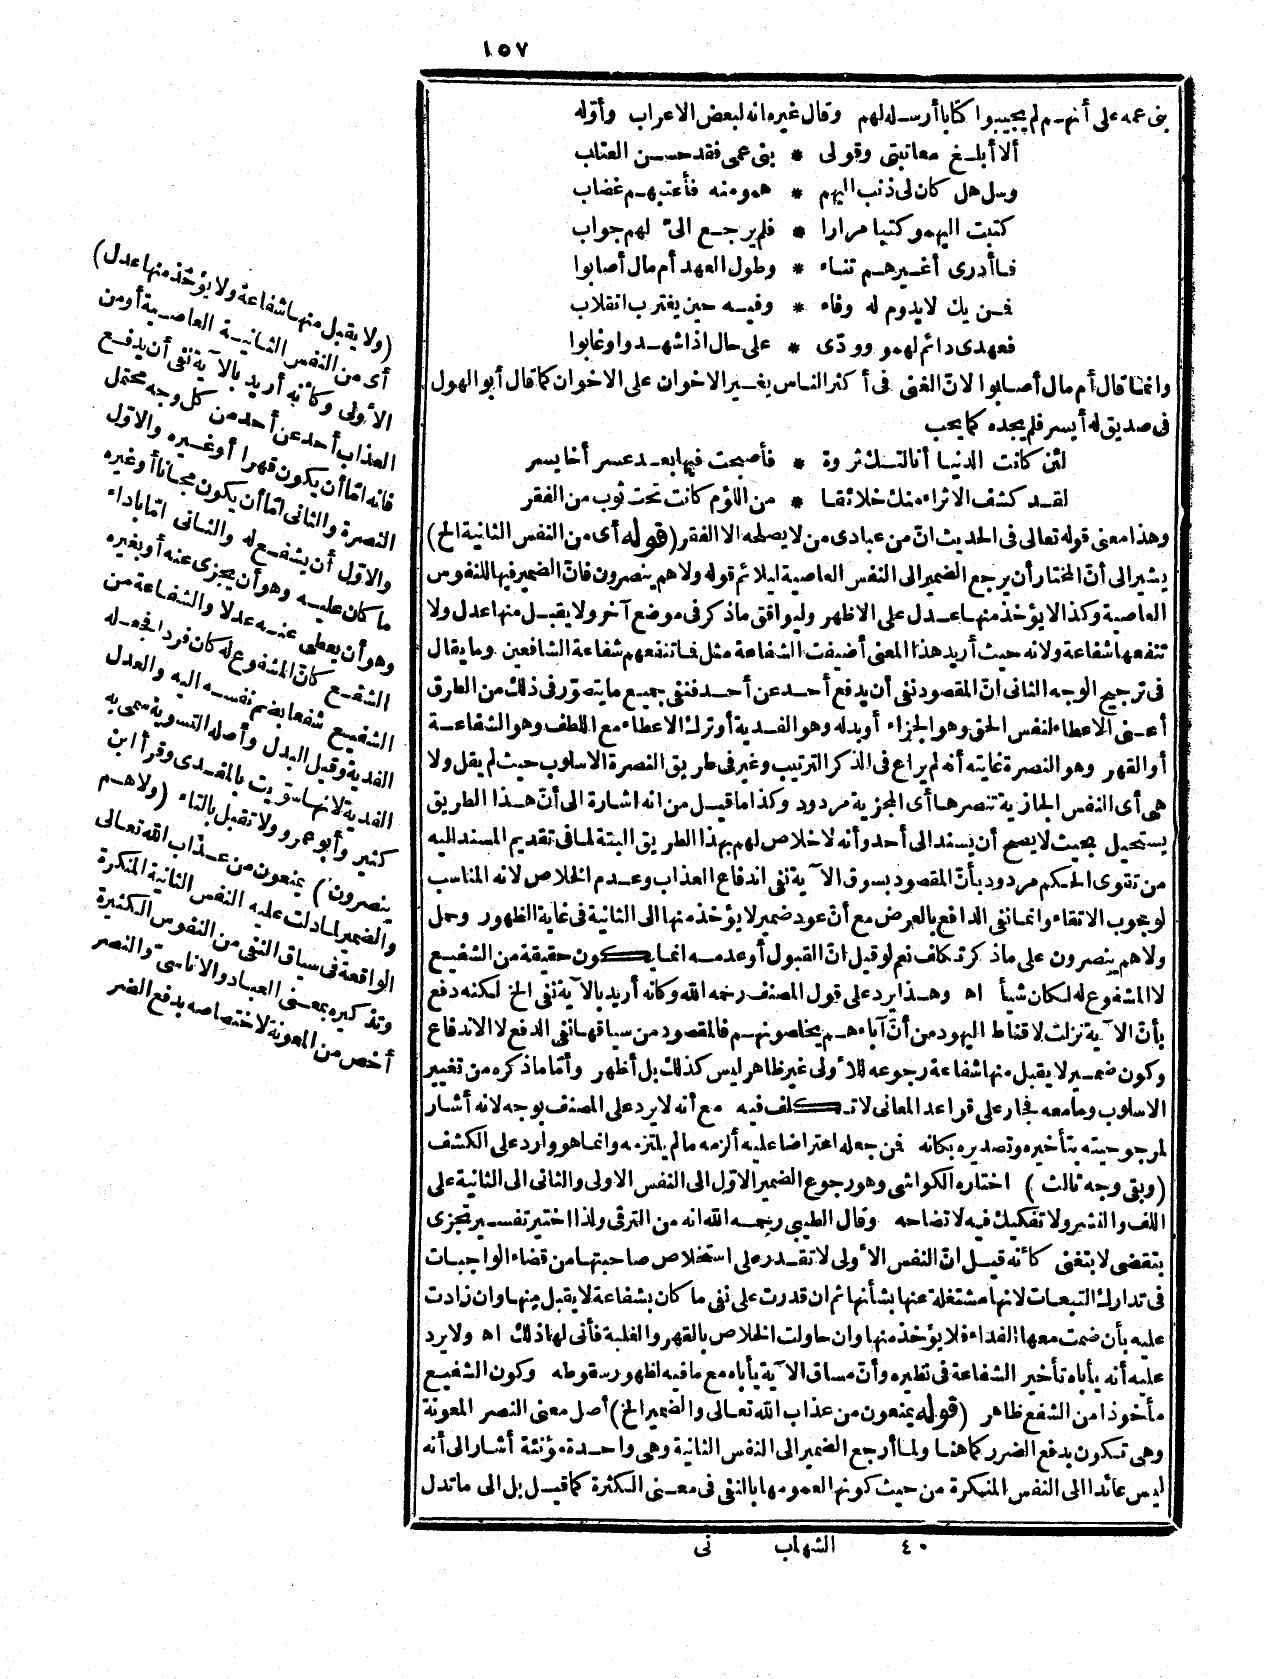 ١٥٧
بنى عمه على أنهم لم يجيبوا كتابا أرسله لهم وقال غيره انه لبعض الاعراب وأوّله
ألا أبلغ معاتبتى وقولى * بنى عمى فقد حسن العتاب
وسل هل كان لى ذنب اليهم * همو منه فأعتبهم غضاب
كتبت اليهمو كتبا مرارا * فلم يرجع الىّ لهم جواب
فما أدرى أغيرهم تناء * وطول العهد أم مال أصابوا
فمن يك لا يدوم له وفاء * وفيه حين يغترب انقلاب
فعهدى دائم لهمو وودّى * على حال اذا شهدوا وغابوا
وانما قال أم مال أصابوا لانّ الغنى فى أكثر الناس يغير الاخوان على الاخوان كما قال أبو الهول
فى صديق له أيسر فلم يجده كما يحب
لئن كانت الدنيا أنالتك ثروة * فأصبحت فيها بعد عسر أخا يسر
لقد كشف الاثراء منك خلائقا * من اللؤم كانت تحت ثوب من الفقر
وهذا معنى قوله تعالى فى الحديث انّ من عبادى من لا يصلحه الا الفقر (قوله أى من النفس الثانية الخ)
يشير الى أنّ المختار أن يرجع الضمير الى النفس العاصية ليلائم قوله ولا هم ينصرون فانّ الضمير فيها للنفوس
العاصية وكذا لا يؤخذ منها عدل على الاظهر وليوافق ما ذكر فى موضع آخر ولا يقبل منها عدل ولا
تنفعها شفاعة ولانه حيث أريد هذا المعنى أضيفت الشفاعة مثل فما تنفعهم شفاعة الشافعين وما يقال
فى ترجيح الوجه الثانى انّ المقصود نفى أن يدفع أحد عن أحد فنفى جميع ما يتصوّر فى ذلك من الطرق
أعنى الاعطاء لنفس الحق وهو الجزاء أو بدله وهو الفدية أو ترك الاعطاء مع اللطف وهو الشفاعة
أو القهر وهو النصرة غايته أنه لم يراع فى الذكر الترتيب وغير فى طريق النصرة الاسلوب حيث لم يقل ولا
هى أى النفس الجازية تنصرها أى المجزية مردود وكذا ما قيل من انه اشارة الى أنّ هذا الطريق
يستحيل بحيث لا يصح أن يسند الى أحد وأنه لا خلاص لهم بهذا الطريق البتة لما فى تقديم المسند اليه
من تقوى الحكم مردود بأنّ المقصود بسوق الآية نفى اندفاع العذاب وعدم الخلاص لانه المناسب
لوجوب الاتقاء وانما نفى الدافع بالعرض مع أنّ عود ضمير لا يؤخذ منها الى الثانية فى غاية الظهور وحمل
ولا هم ينصرون على ما ذكر تكاف نعم لو قيل انّ القبول أو عدمه انما يكون حقيقة من الشفيع
لا المشفوع له لكان شيأ اه وهذا يرد على قول المصنف رحمه الله وكانه أريد بالآية نفى الخ لكنه دفع
بأنّ الآية نزلت لاقناط اليهود من أنّ آباءهم يخلصونهم فالمقصود من سياقها نفى الدفع لا الاندفاع
وكون ضمير لا يقبل منها شفاعة رجوعه للأولى غير ظاهر ليس كذلك بل أظهر وأمّا ما ذكره من تغيير
الاسلوب وما معه فجار على قواعد المعانى لا تكلف فيه مع أنه لا يرد على المصنف بوجه لانه أشار
لمرجوحيته بتأخيره وتصديره بكانه فمن جعله اعتراضا عليه ألزمه ما لم يلتزمه وانما هو وارد على الكشف
(وبقى وجه ثالث) اختاره الكواشى وهو رجوع الضمير الاوّل الى النفس الاولى والثانى الى الثانية على
اللف والنشر ولا تفكيك فيه لاتضاحه وقال الطيبى رحمه الله انه من الترقى ولذا اختير تفسير تجزى
بتقضى لا بتغنى كأنه قيل انّ النفس الأولى لا تقدر على استخلاص صاحبتها من قضاء الواجبات
فى تدارك التبعات لانها مشتغلة عنها بشأنها ثم ان قدرت على نفى ما كان بشفاعة لا يقبل منها وان زادت
عليه بأن ضمت معها الفداء فلا يؤخذ منها وان حاولت الخلاص بالقهر والغلبة فأنى لها ذلك اه ولا يرد
عليه أنه يأباه تأخير الشفاعة فى نظيره وأنّ مساق الآية يأباه مع ما فيه لظهور سقوطه وكون الشفيع
مأخوذا من الشفع ظاهر (قوله يمنعون من عذاب الله تعالى والضمير الخ) أصل معنى النصر المعونة
وهى تكون بدفع الضرر كما هنا ولما أرجع الضمير الى النفس الثانية وهى واحدة مؤنثة أشار الى أنه
ليس عائدا الى النفس المنكرة من حيث كونها لعمومها بالنفى فى معنى الكثرة كما قيل بل الى ما تدل
٤٠ الشهاب نى
(ولا يقبل منها شفاعة ولا يؤخذ منها عدل)
أى من النفس الثانية العاصية أو من
الأولى وكأنه أريد بالآية نفى أن يدفع
العذاب أحد عن أحد من كل وجه محتمل
فانه امّا أن يكون قهرا أو غيره والاوّل
النصرة والثانى امّا أن يكون مجانا أو غيره
والاوّل أن يشفع له والثانى امّا باداء
ما كان عليه وهو أن يجزى عنه أو بغيره
وهو أن يعطى عنه عدلا والشفاعة من
الشفع كانّ المشفوع له كان فردا فجعله
الشفيع شفعا بضم نفسه اليه والعدل
الفدية وقيل البدل وأصله التسوية سمى به
الفدية لانها سوّيت بالمفدى وقرأ ابن
كثير وأبو عمرو ولا تقبل بالتاء (ولا هم
ينصرون) يمنعون من عذاب الله تعالى
والضمير لما دلت عليه النفس الثانية المنكرة
الواقعة فى سياق النفى من النفوس الكثيرة
وتذكيره بمعنى العباد والاناسى والنصر
أخص من المعونة لاختصاصه بدفع الضر